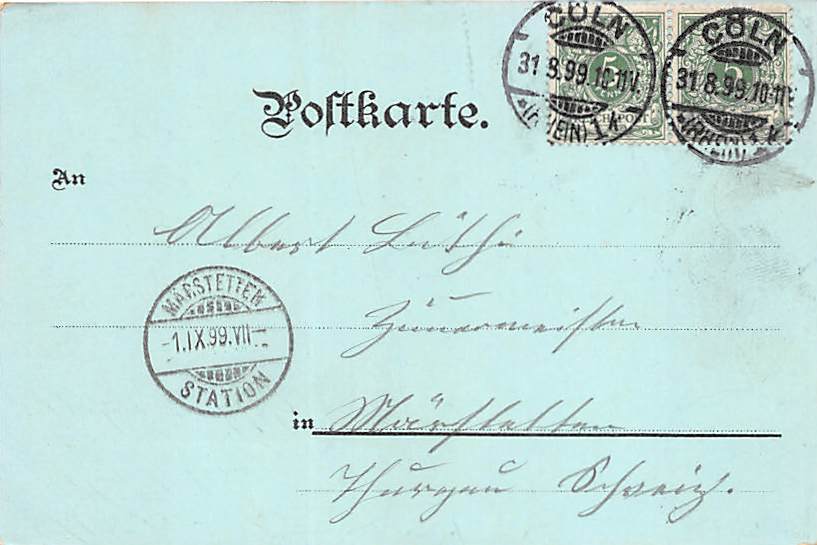 CÖLN
31 8.99.10-11V.
*(RHEIN) 1 k
5
CÖLN
31 8.99.10-11V.
*(RHEIN) 1 k
5
Postkarte.
An
Albert Lüthi
Zimmermeister
MÄRSTETTEN
-1.IX.99.VII-
STATION
in Märstetten
Thurgau Schweiz.